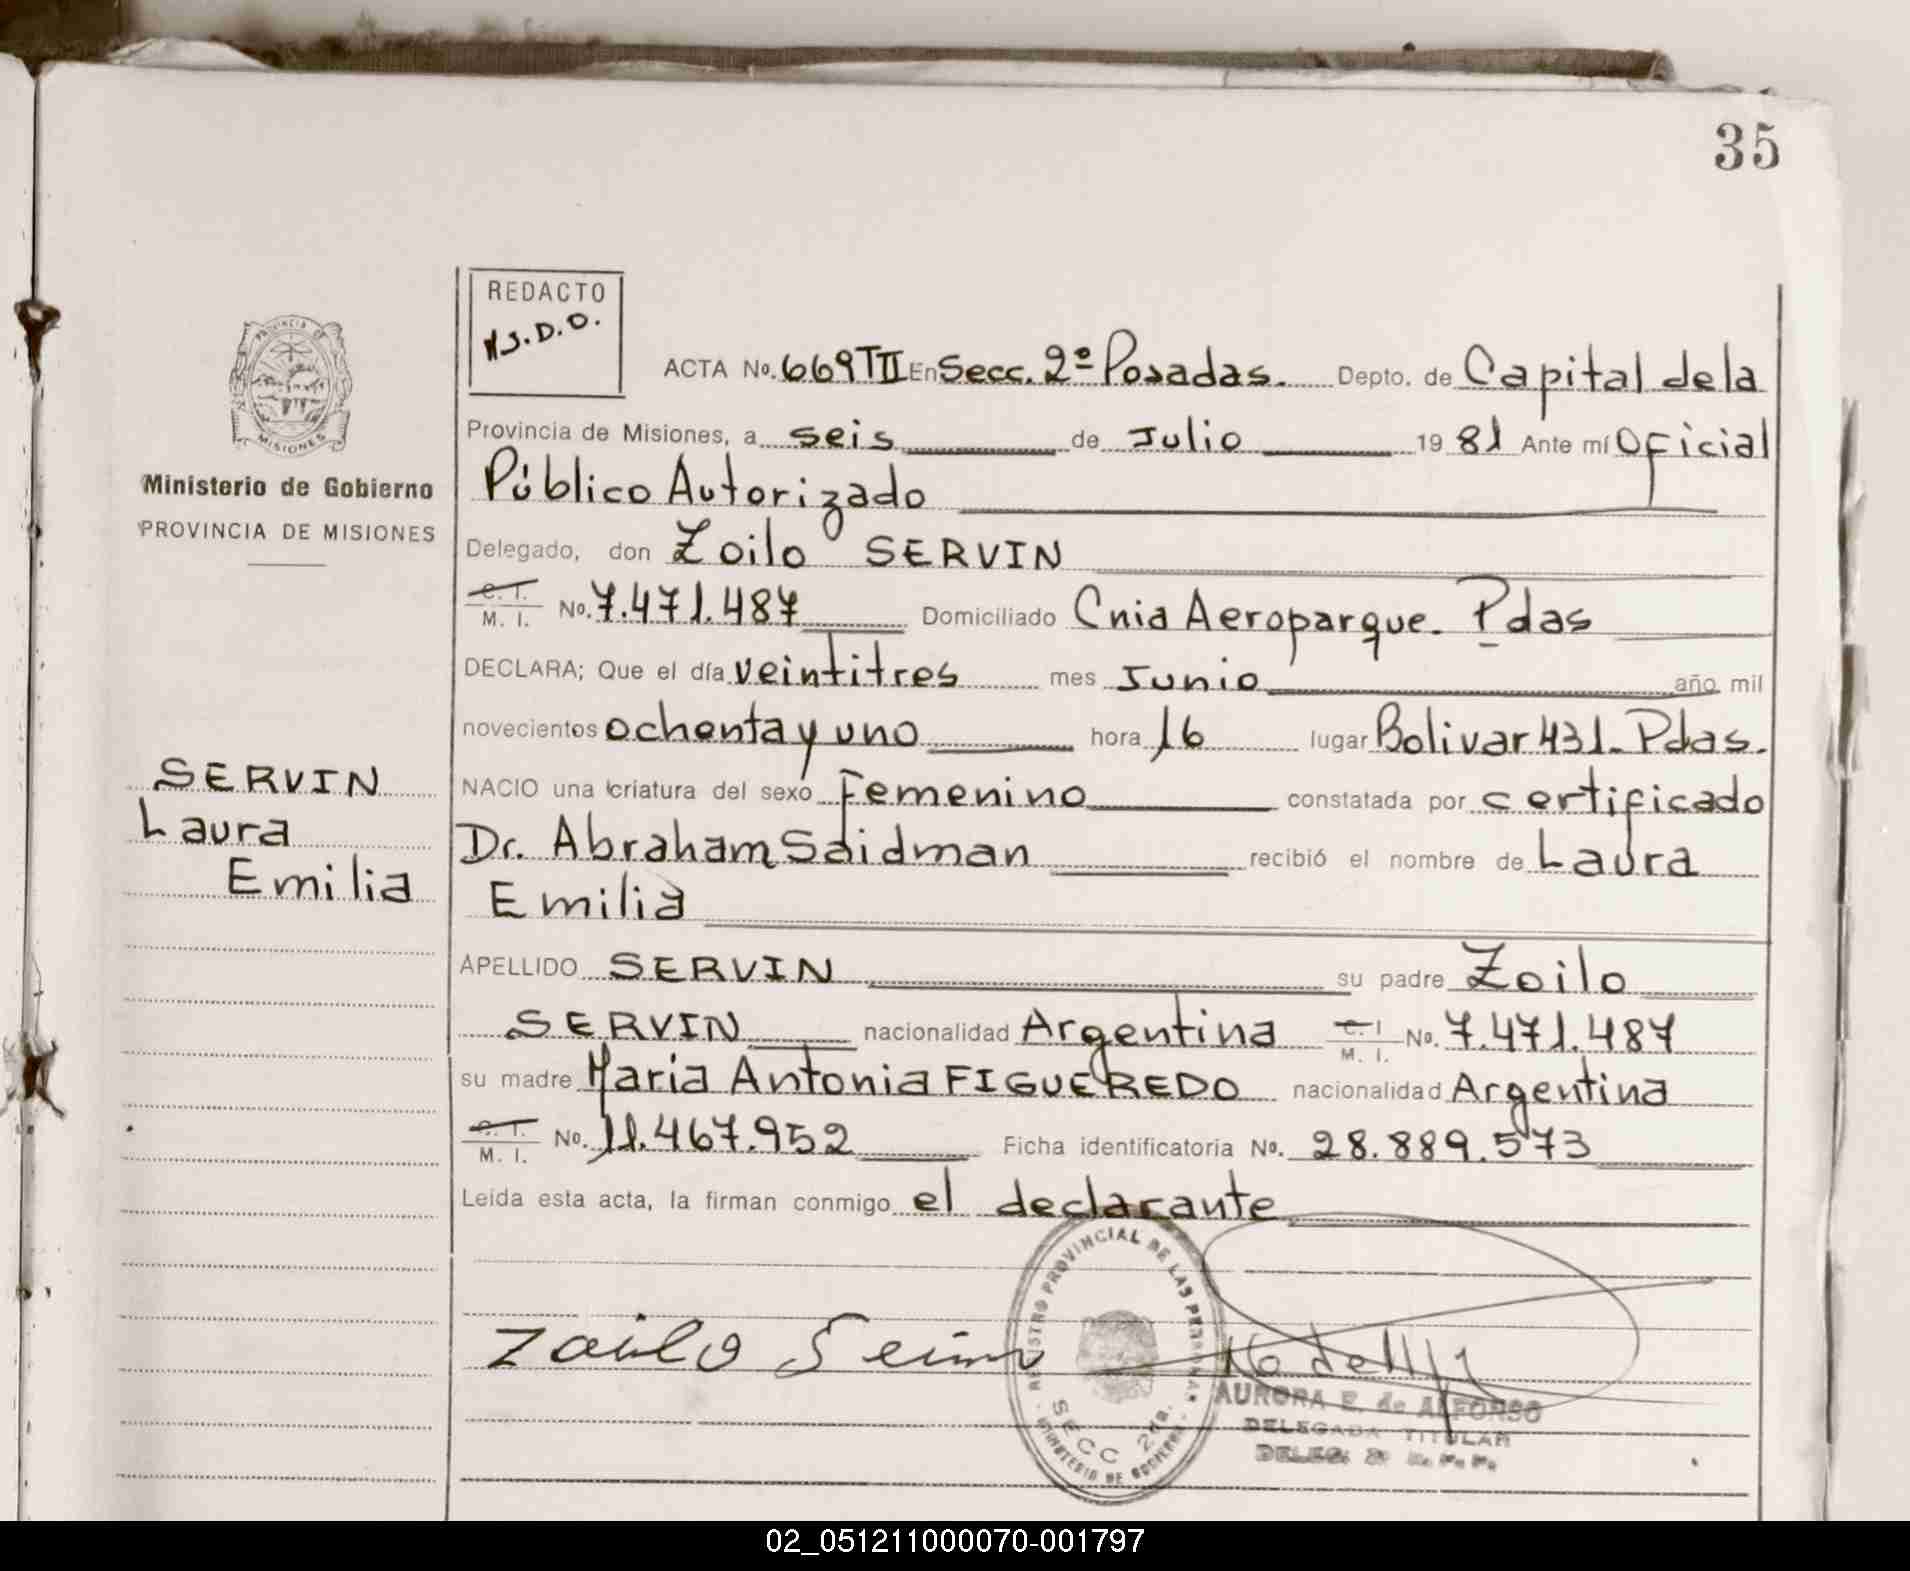 35
REDACTO
N.J.D.O.
ACTA No. 669 TII En Secc. 2º Posadas. Depto. de Capital de la
Provincia de Misiones, a seis de Julio 1981 Ante mí Oficial
Público Autorizado
Delegado, don Zoilo SERVIN
C. I. / M. I. No. 7.471.487 Domiciliado Cnia Aeroparque. Pdas
DECLARA; Que el día veintitres mes Junio año mil
novecientos ochenta y uno hora 16 lugar Bolivar 431. Pdas.
NACIO una criatura del sexo Femenino constatada por certificado
Dr. Abraham Saidman recibió el nombre de Laura
Emilia
APELLIDO SERVIN su padre Zoilo
SERVIN nacionalidad Argentina C. I / M. I. No. 7.471.487
su madre Maria Antonia FIGUEREDO nacionalidad Argentina
C. I. / M. I. No. 11.467.952 Ficha identificatoria No. 28.889.573
Leída esta acta, la firman conmigo el declarante
Zoilo Servin
REGISTRO PROVINCIAL DE LAS PERSONAS
SECC 2da.
MINISTERIO DE GOBIERNO
AURORA E. de ALFONSO
DELEGADA TITULAR
PROVINCIA DE
MISIONES
Ministerio de Gobierno
PROVINCIA DE MISIONES
SERVIN
Laura
Emilia
02_051211000070-001797